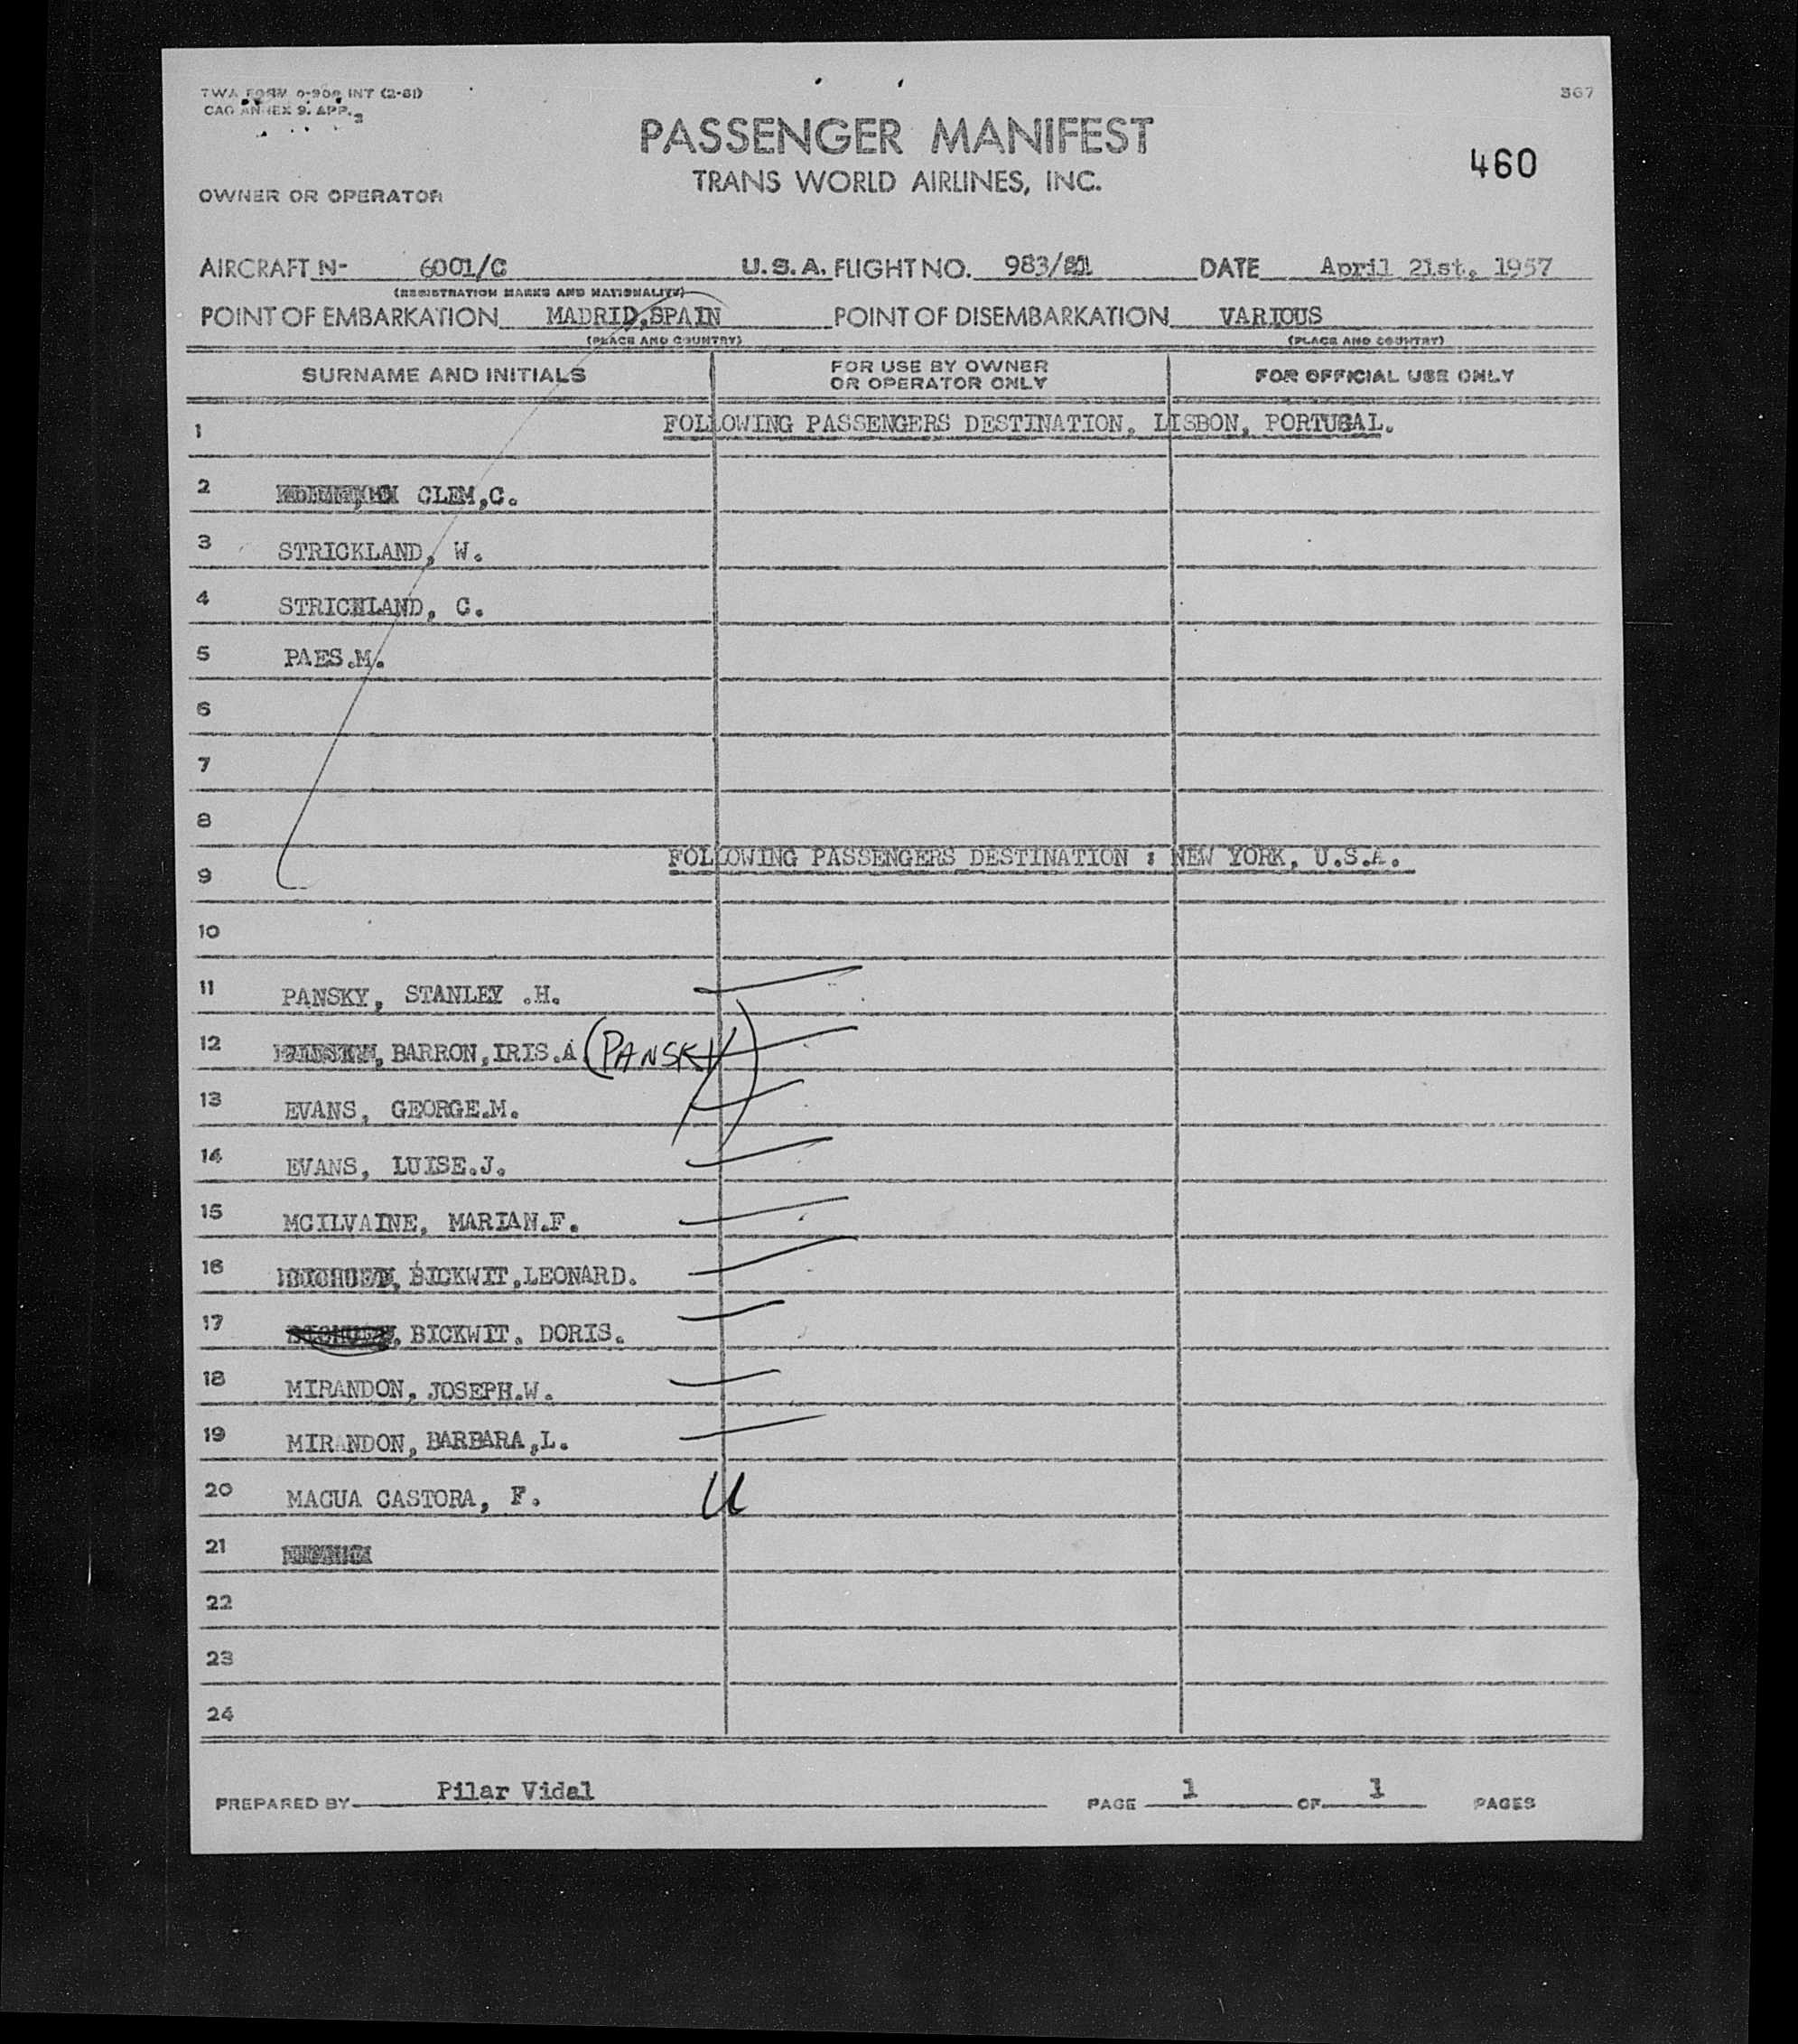 TWA FORM 0-900 INT (2-61)
367
CAO ANNEX 9. APP. 3
PASSENGER MANIFEST
460
TRANS WORLD AIRLINES, INC.
OWNER OR OPERATOR
AIRCRAFT N- 6001/C U.S.A. FLIGHT NO. 983/21 DATE April 21st, 1957
(REGISTRATION MARKS AND NATIONALITY)
POINT OF EMBARKATION MADRID,SPAIN POINT OF DISEMBARKATION VARIOUS
(PLACE AND COUNTRY) (PLACE AND COUNTRY)
SURNAME AND INITIALS FOR USE BY OWNER OR OPERATOR ONLY FOR OFFICIAL USE ONLY
1 FOLLOWING PASSENGERS DESTINATION. LISBON, PORTUGAL.
2 CLEM,C.
3 STRICKLAND, W.
4 STRICKLAND, C.
5 PAES.M.
6
7
8
9 FOLLOWING PASSENGERS DESTINATION : NEW YORK, U.S.A.
10
11 PANSKY, STANLEY .H.
12 BARRON,IRIS.A. (PANSKY)
13 EVANS, GEORGE.M.
14 EVANS, LUISE.J.
15 MCILVAINE, MARIAN.F.
16 BICKWIT,LEONARD.
17 BICKWIT. DORIS.
18 MIRANDON, JOSEPH.W.
19 MIRANDON, BARBARA,L.
20 MACUA CASTORA, F. U
21
22
23
24
PREPARED BY Pilar Vidal PAGE 1 OF 1 PAGES